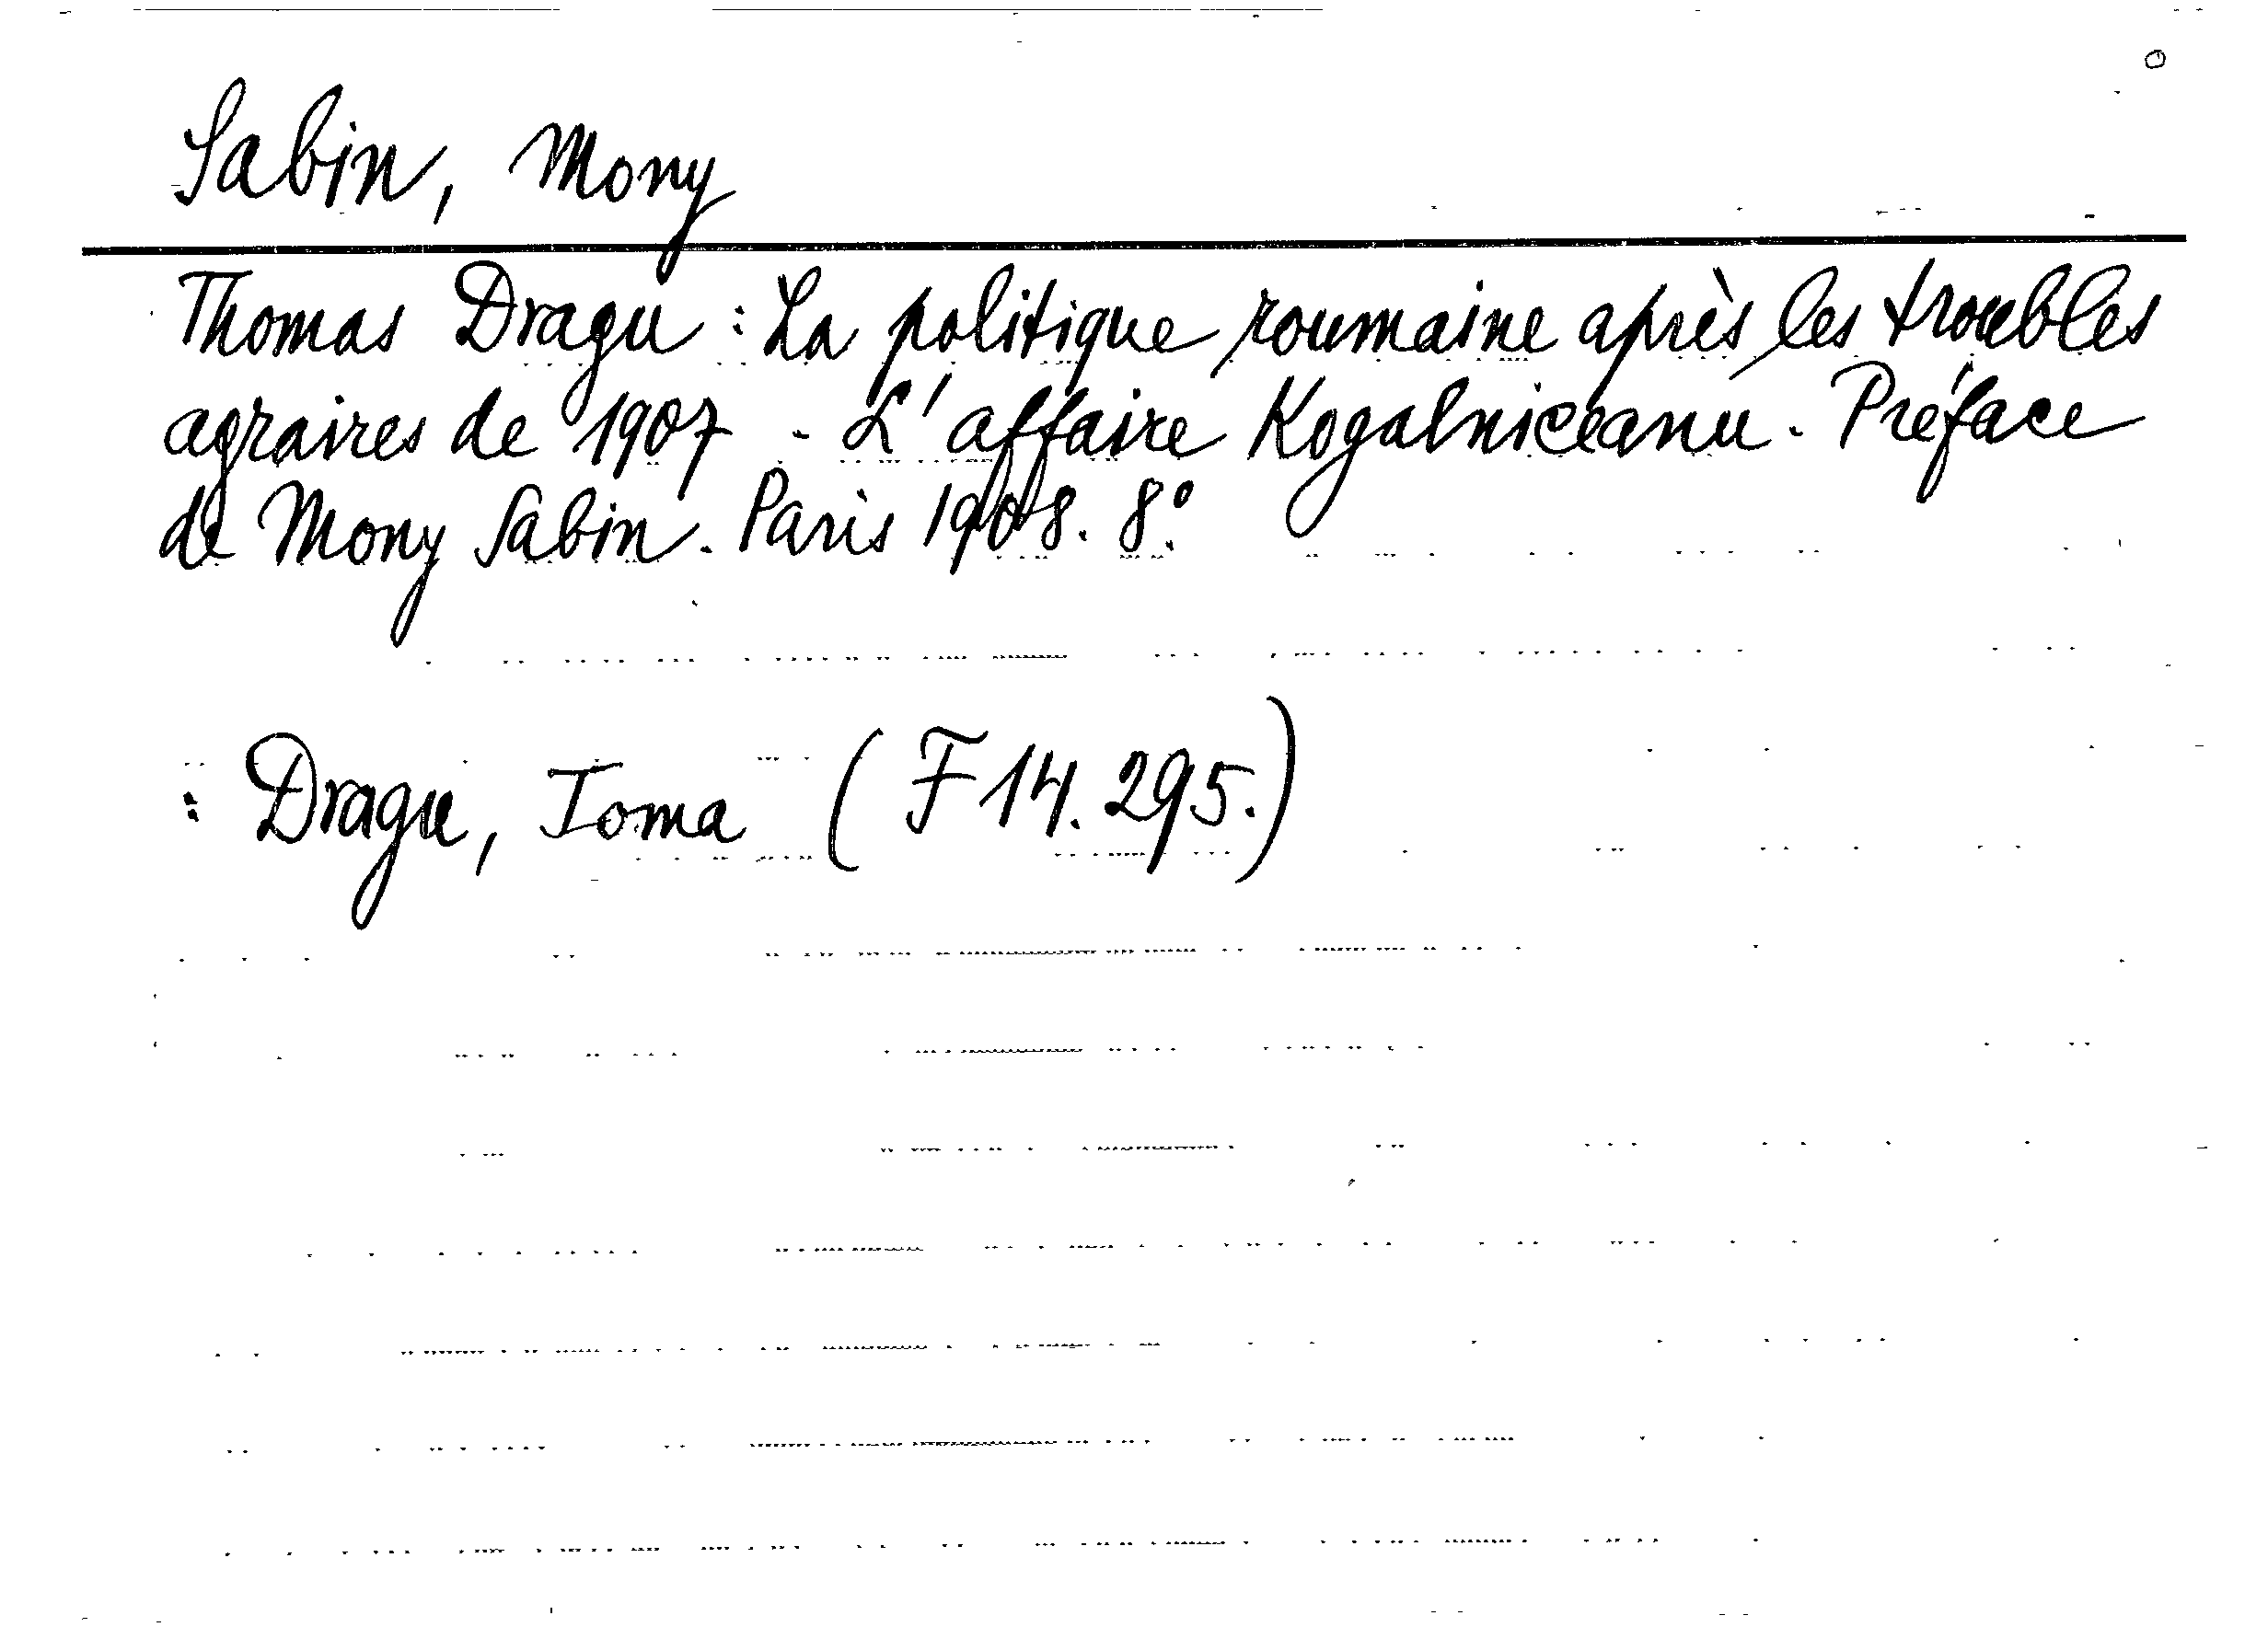 Sabin, Mony
Thomas Dragu : La politique roumaine après les troubles
agraires de 1907 - L'affaire Kogalniceanu. Préface
de Mony Sabin. Paris 1908. 8°.
: Dragu, Toma (F 14.295.)